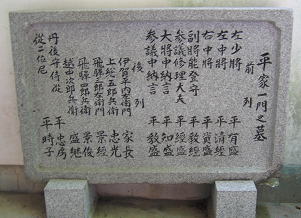 平家一門之墓
前列
左少将 平有盛
左中将 平清経
右中将 平資盛
副将能登守 平教経
参議修理大夫 平経盛
大将中納言 平知盛
参議中納言 平教盛
後列
伊賀平内左衛門 家長
上総五郎兵衛 忠光
飛騨三郎左衛門 景経
飛騨四郎兵衛 景俊
越中次郎兵衛 盛継
丹後守侍従 平忠房
従二位尼 平時子